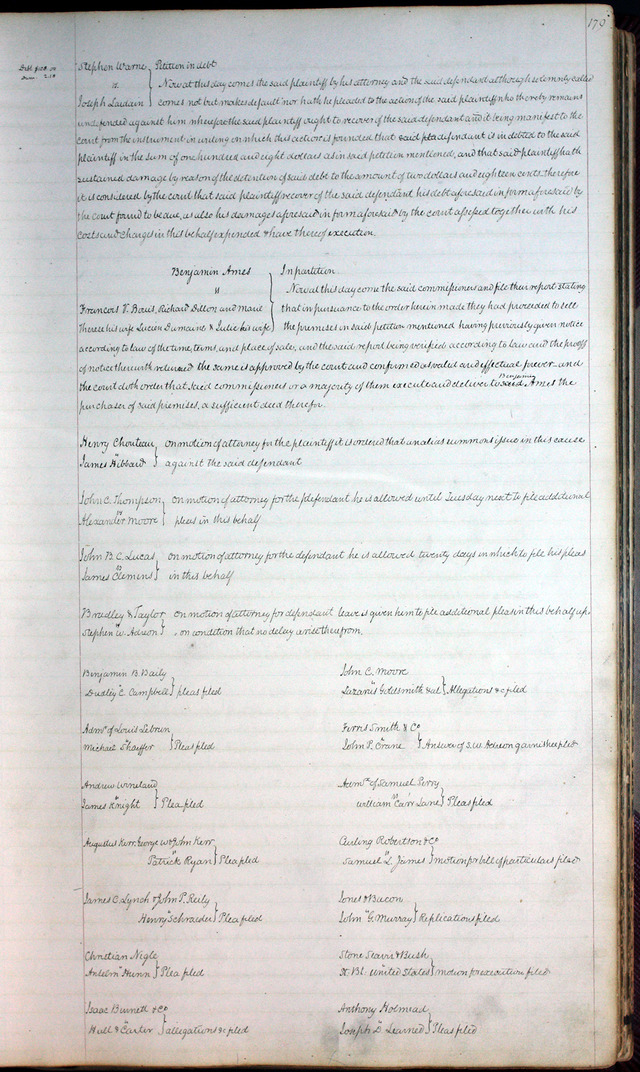 179
Debt $108.00
Dam. 2.18
Stephen Warne } Petition in debt
vs Now at this day comes the said plaintiff by his attorney and the said defendant although solemnly called
Joseph Laudain comes not but makes default nor hath he pleaded to the action of the said plaintiff who thereby remains
undefended against him wherefore the said plaintiff ought to recover of the said defendant and it being manifest to the
court from the instrument in writing on which this action is founded that said defendant is indebted to the said
plaintiff in the sum of one hundred and eight dollars as in said petition mentioned, and that said plaintiff hath
sustained damage by reason of the detention of said debt to the amount of two dollars and eighteen cents. Therefore
it is considered by the court that said plaintiff recover of the said defendant his debt aforesaid in form aforesaid by
the court found to be due, as also his damages aforesaid in form aforesaid by the court assessed together with his
costs and charges in this behalf expended & have thereof execution.
Benjamin Ames } In partition
vs Now at this day come the said commissioners and file their report stating
Francois V. Bouis, Richard Dillon and Marie that in pursuance to the order herein made they had proceeded to sell
Therese his wife Lucien Dumaine & Julie his wife the premises in said petition mentioned having previously given notice
according to law of the time, terms, and place of sale, and the said report being verified according to law and the proof
of notice therewith returned the same is approved by the court and confirmed as valid and effectual forever and
the court doth order that said commissioners or a majority of them execute and deliver to said Benjamin Ames the
purchaser of said premises, a sufficient deed therefor.
Henry Chouteau } on motion of attorney for the plaintiff it is ordered that an alias summons issue in this cause
James Hibbard against the said defendant
John C. Thompson } on motion of attorney for the defendant he is allowed until Tuesday next to file additional
Alexander Moore pleas in this behalf
John B. C. Lucas } on motion of attorney for the defendant he is allowed twenty days in which to file his pleas
James Clemens in this behalf
Bradley & Taylor on motion of attorney for defendant leave is given him to file additional pleas in this behalf up-
Stephen W. Adreon } on condition that no delay arise therefrom.
Benjamin B. Daily
vs
Dudley C. Campbell } pleas filed
John C. Moore
vs
Lazarus Goldsmith & al } Allegations &c filed
Admr of Louis Lebrun
Michael Shaffer } Pleas filed
Ferris Smith & Co
vs
John P. Crane } Answer of S. W. Adreon garnishee filed
Andrew Wineland
vs
James Knight } Plea filed
Admr of Samuel Perry
vs
William Carr Lane } Pleas filed
Augustus Kerr, George W. & John Kerr
vs
Patrick Ryan } Plea filed
Curling Robertson & Co
vs
Samuel L. James } motion for bill of particulars filed
James C. Lynch & John P. Reily
vs
Henry Schrader } Plea filed
Jones & Bacon
vs
John G. Murray } Replications filed
Christian Nigle
vs
Anselm Hunn } Plea filed
Stone Searis & Bush
vs
St. Bt. United States } motion for execution filed
Isaac Burnett & Co
vs
Hull & Carter } allegations &c filed
Anthony Holmead
vs
Joseph D. Learned } Pleas filed